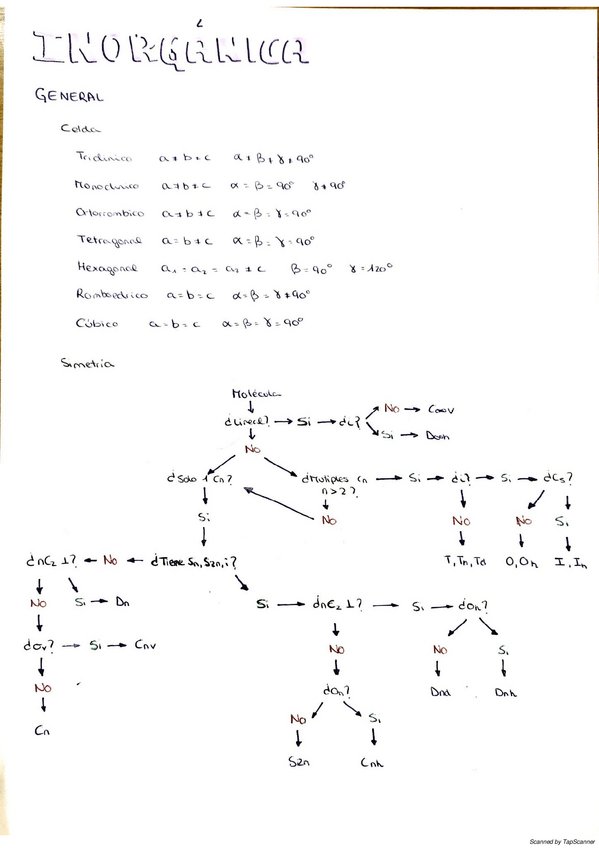 INORGÁNICA
GENERAL
Celda
Triclínico a ≠ b ≠ c α ≠ β ≠ γ ≠ 90°
Monoclínico a ≠ b ≠ c α = β = 90° γ ≠ 90°
Ortorrombico a ≠ b ≠ c α = β = γ = 90°
Tetragonal a = b ≠ c α = β = γ = 90°
Hexagonal a₁ = a₂ = a₃ ≠ c β = 90° γ = 120°
Romboedrico a = b = c α = β = γ ≠ 90°
Cúbico a = b = c α = β = γ = 90°
Simetría
Molécula
¿Lineal? → Si → ¿i? No → C∞v
Si → D∞h
No
¿Solo 1 Cn? ¿Multiples Cn → Si → ¿i? → Si → ¿C5?
n>2?
Si No No No Si
T, Th, Td O, Oh I, Ih
¿nC2 ⊥? ← No ← ¿Tiene Sn, S2n, i?
No Si → Dn Si → ¿nC2 ⊥? → Si → ¿σh?
¿σv? → Si → Cnv No No Si
No ¿σh? Dnd Dnh
Cn No Si
S2n Cnh
Scanned by TapScanner